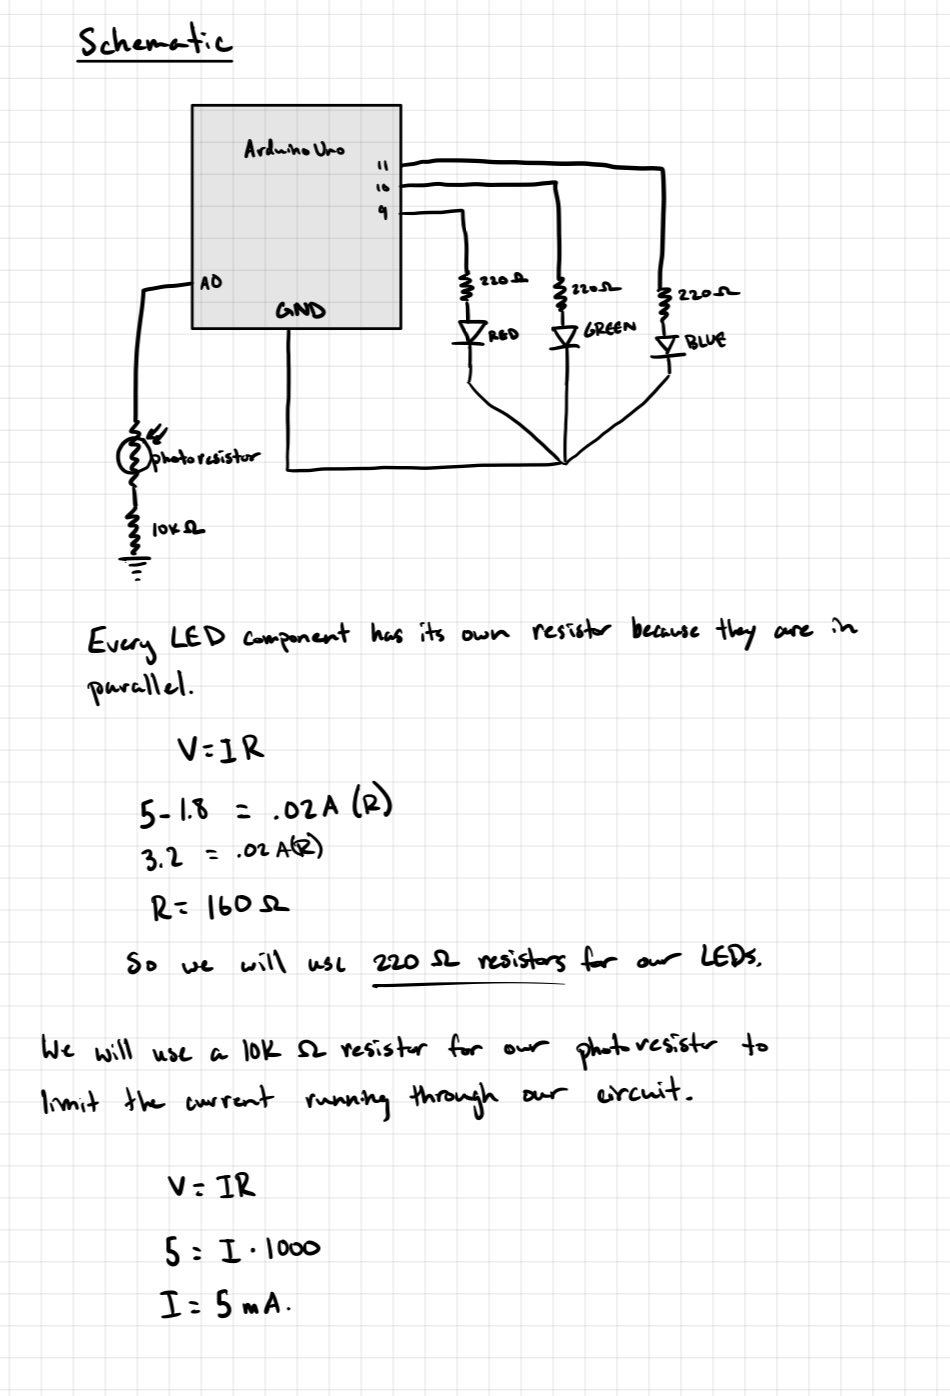 Schematic
Arduino Uno
11
10
9
A0
GND
220Ω
220Ω
220Ω
RED
GREEN
BLUE
photoresistor
10KΩ
Every LED component has its own resistor because they are in
parallel.
V=IR
5-1.8 = .02A (R)
3.2 = .02A(R)
R= 160Ω
So we will use 220 Ω resistors for our LEDs.
We will use a 10K Ω resistor for our photoresistor to
limit the current running through our circuit.
V= IR
5 = I · 1000
I = 5 mA.